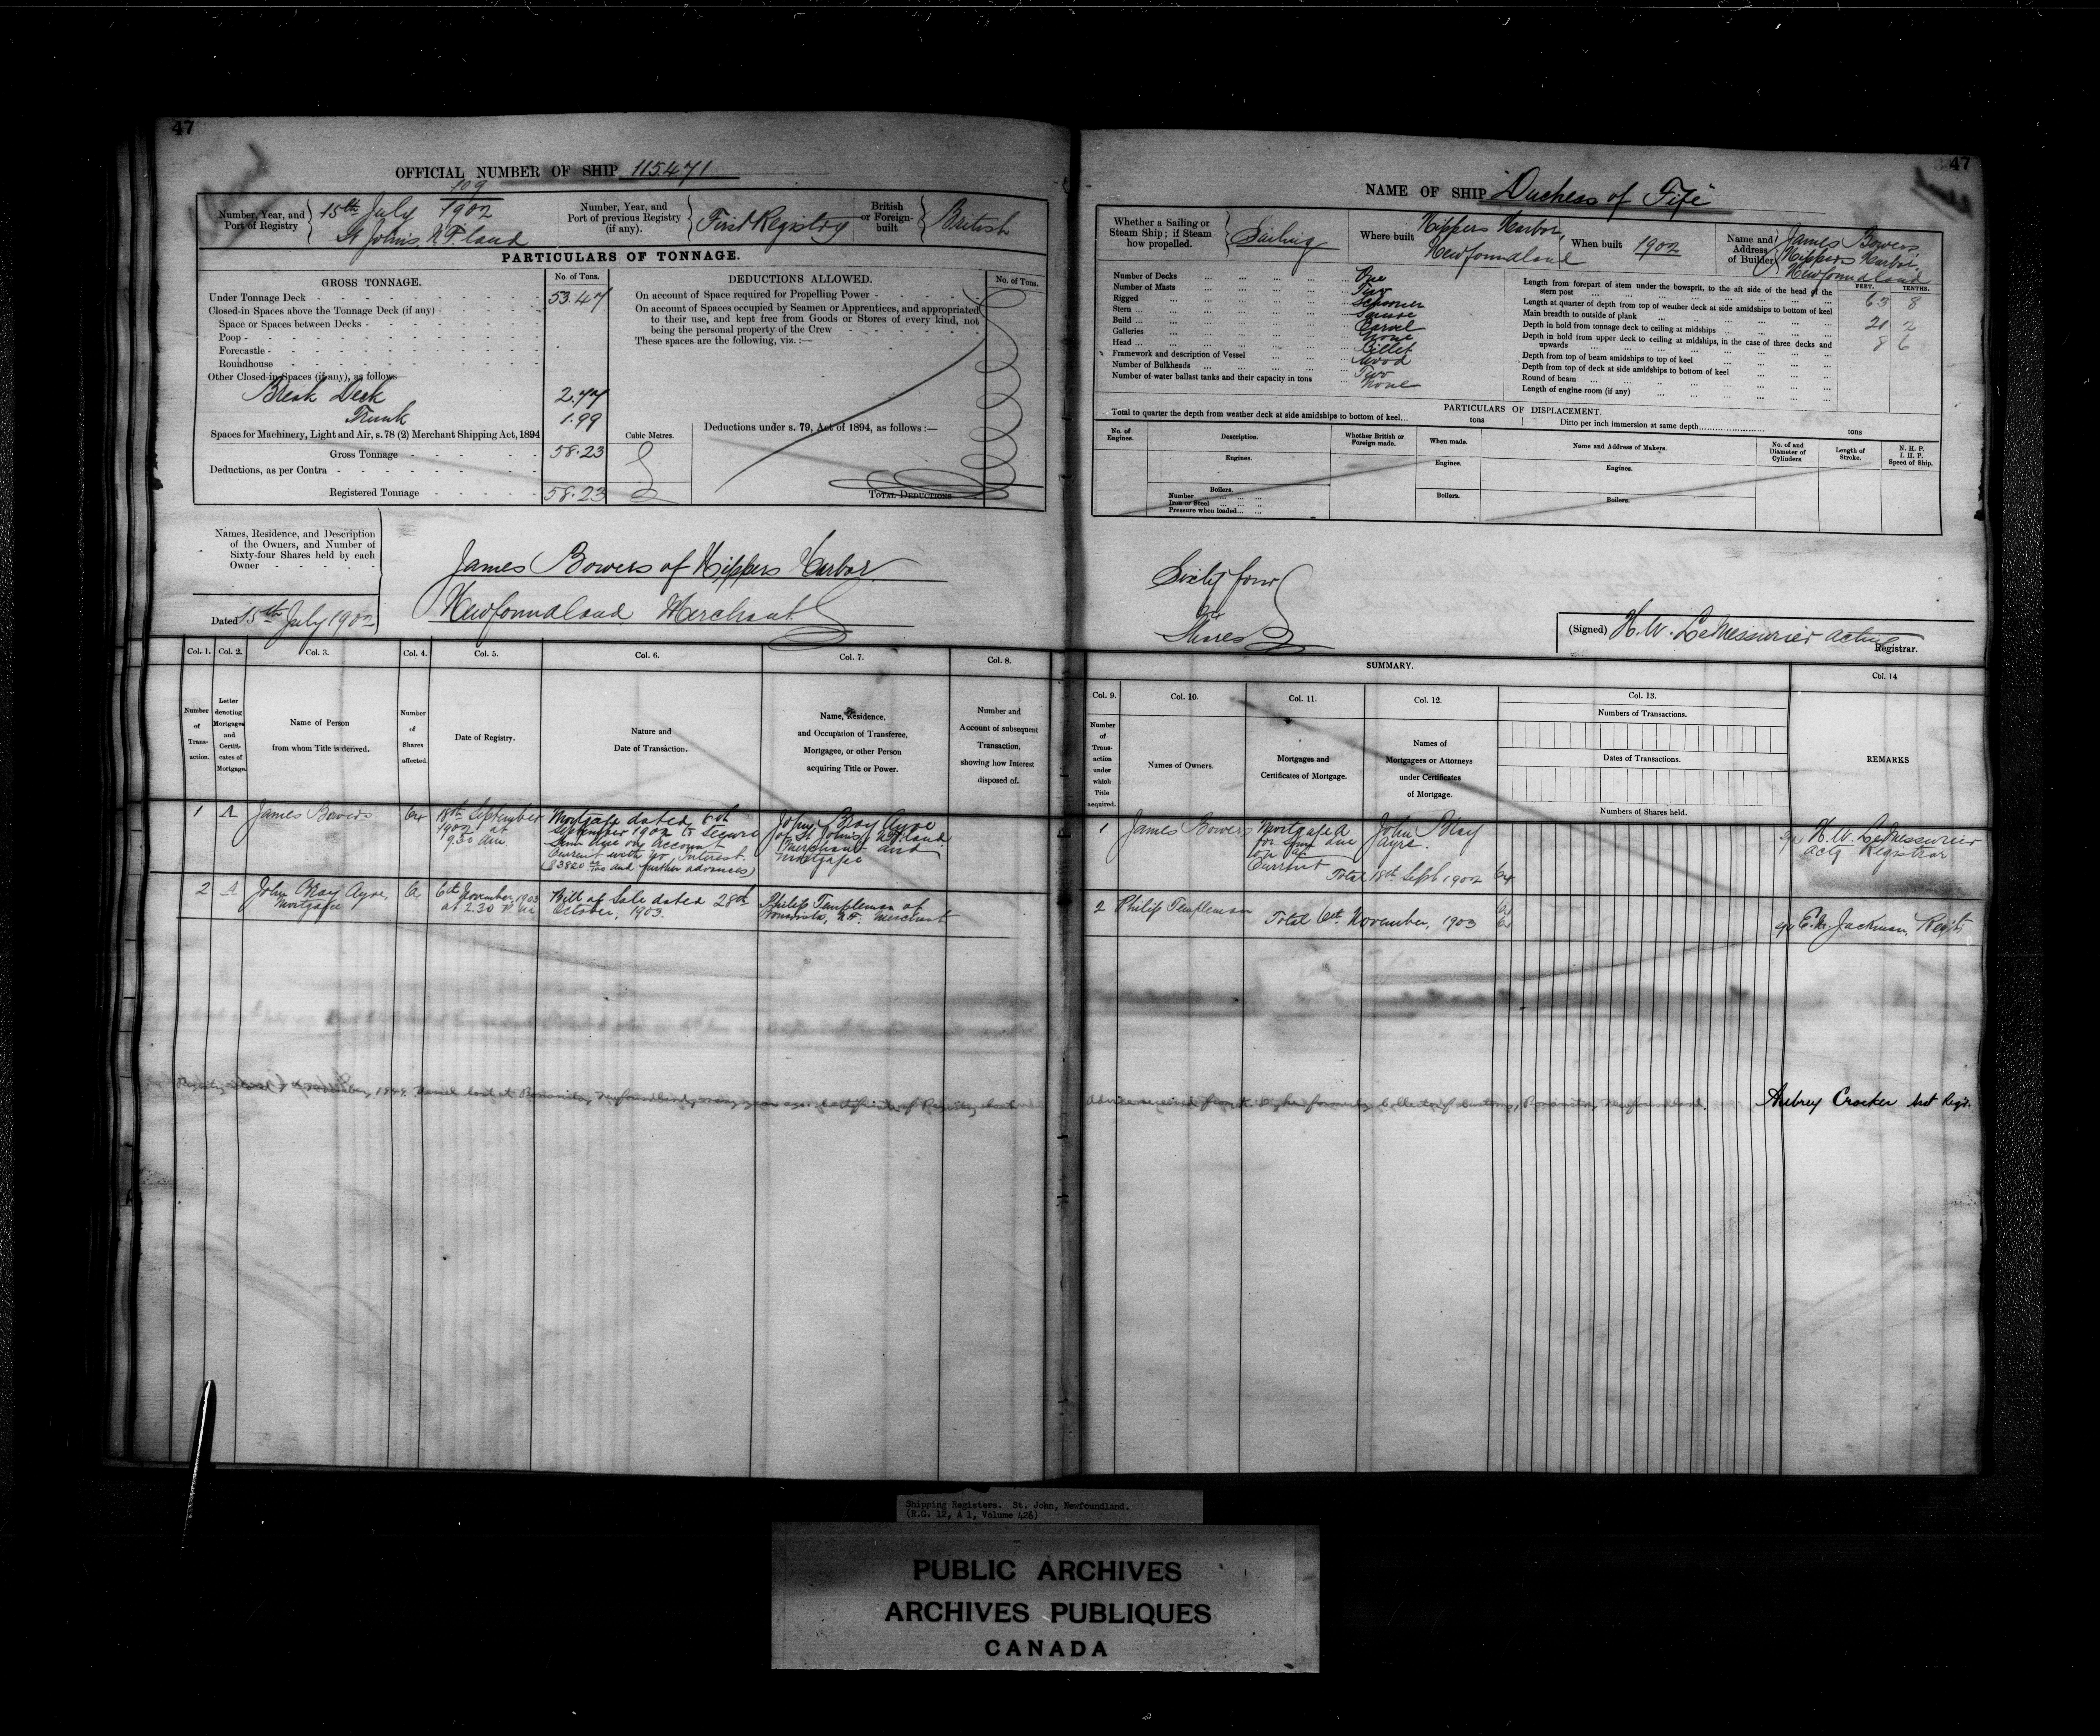 47
OFFICIAL NUMBER OF SHIP 115.471
Number, Year, and Port of Registry
109
15th July 1902
St John's N.F.land
Number, Year, and Port of previous Registry (if any).
First Registry
British or Foreign-built
British
PARTICULARS OF TONNAGE.
GROSS TONNAGE.
No. of Tons.
Under Tonnage Deck 53.47
Closed-in Spaces above the Tonnage Deck (if any)
Space or Spaces between Decks
Poop
Forecastle
Roundhouse
Other Closed-in Spaces (if any), as follows
Break Deck 2.77
Trunk 1.99
Spaces for Machinery, Light and Air, s. 78 (2) Merchant Shipping Act, 1894
Cubic Metres.
Gross Tonnage 58.23
Deductions, as per Contra
Registered Tonnage 58.23
DEDUCTIONS ALLOWED.
No. of Tons.
On account of Space required for Propelling Power
On account of Spaces occupied by Seamen or Apprentices, and appropriated
to their use, and kept free from Goods or Stores of every kind, not
being the personal property of the Crew
These spaces are the following, viz. :—
Deductions under s. 79, Act of 1894, as follows :—
TOTAL DEDUCTIONS
Names, Residence, and Description
of the Owners, and Number of
Sixty-four Shares held by each
Owner
Dated 15th July 1902
James Bowers of Nippers Harbor
Newfoundland Merchant
Col. 1.
Number of Transaction.
Col. 2.
Letter denoting Mortgages and Certificates of Mortgage.
Col. 3.
Name of Person
from whom Title is derived.
Col. 4.
Number of Shares affected.
Col. 5.
Date of Registry.
Col. 6.
Nature and
Date of Transaction.
Col. 7.
Name, Residence,
and Occupation of Transferee,
Mortgagee, or other Person
acquiring Title or Power.
Col. 8.
Number and
Account of subsequent
Transaction,
showing how Interest
disposed of.
1 A James Bowers 64
18th September
1902 at
9.30 am.
Mortgage dated 6th
September 1902 to secure
sum due on account
current with Interest
and further advances)
John Bray Ayre
of St John's Nfland
Merchant and
Mortgagee
2 A John Bray Ayre,
Mortgagee
64
6th November, 1903
at 2.30 P.M.
Bill of Sale dated 28th
October, 1903.
Philip Templeman of
Bonavista, N.F. Merchant
47
NAME OF SHIP "Duchess of Fife"
Whether a Sailing or
Steam Ship; if Steam
how propelled.
Sailing
Where built
Nippers Harbor,
Newfoundland
When built 1902
Name and Address of Builder
James Bowers,
Nippers Harbor,
Newfoundland
Number of Decks One
Number of Masts Two
Rigged Schooner
Stern Square
Build Carvel
Galleries None
Head Billet
Framework and description of Vessel Wood
Number of Bulkheads Two
Number of water ballast tanks and their capacity in tons None
FEET. TENTHS.
Length from forepart of stem under the bowsprit, to the aft side of the head of the
stern post 63 8
Length at quarter of depth from top of weather deck at side amidships to bottom of keel
Main breadth to outside of plank 21 2
Depth in hold from tonnage deck to ceiling at midships 8 6
Depth in hold from upper deck to ceiling at midships, in the case of three decks and
upwards
Depth from top of beam amidships to top of keel
Depth from top of deck at side amidships to bottom of keel
Round of beam
Length of engine room (if any)
PARTICULARS OF DISPLACEMENT.
Total to quarter the depth from weather deck at side amidships to bottom of keel... tons
Ditto per inch immersion at same depth... tons
No. of Engines.
Description.
Whether British or Foreign made.
When made.
Name and Address of Makers.
No. of and Diameter of Cylinders.
Length of Stroke.
N. H. P.
I. H. P.
Speed of Ship.
Engines.
Engines.
Engines.
Boilers.
Number
Iron or Steel
Pressure when loaded...
Boilers.
Boilers.
Sixty four
Shares
(Signed) H.W. LeMessurier Acting
Registrar.
SUMMARY.
Col. 9.
Number of Transaction under which Title acquired.
Col. 10.
Names of Owners.
Col. 11.
Mortgages and
Certificates of Mortgage.
Col. 12.
Names of
Mortgagees or Attorneys
under Certificates
of Mortgage.
Col. 13.
Numbers of Transactions.
Dates of Transactions.
Numbers of Shares held.
Col. 14
REMARKS
1 James Bowers
Mortgaged
for sum due
on a/c
Current
John Bray
Ayre.
Total 18th Sept 1902 64
H.W. LeMessurier
Actg Registrar
2 Philip Templeman 64
Total 6th November, 1903 64
Jackman, Regtr
Vessel lost at Bonavista, Newfoundland, many years ago. Certificate of Registry
Advice received from formerly Collector of Customs, Bonavista, Newfoundland.
Aubrey Crocker Asst Regr.
Shipping Registers. St. John, Newfoundland.
(R.G. 12, A 1, Volume 426)
PUBLIC ARCHIVES
ARCHIVES PUBLIQUES
CANADA